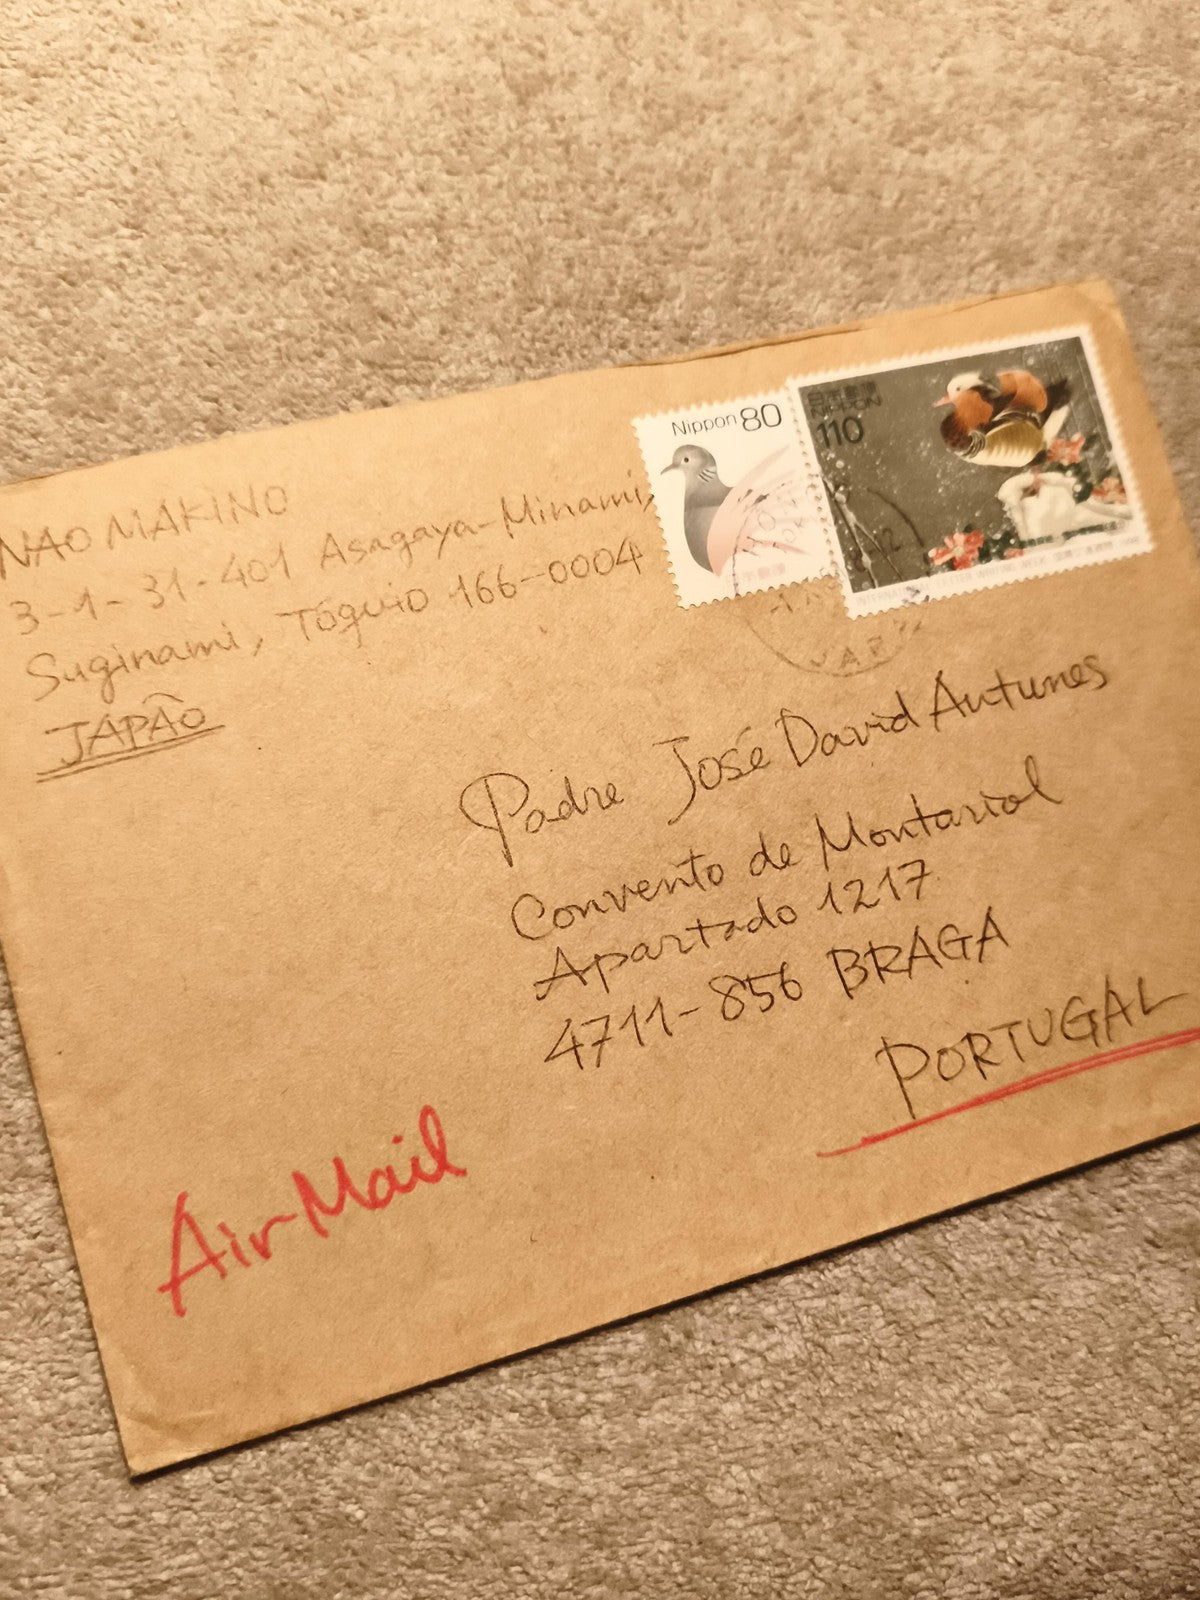 NAO MAKINO
3-1-31-401 Asagaya-Minami,
Suginami, Tóquio 166-0004
JAPÃO
Nippon 80
日本郵便
NIPPON
110
INTERNATIONAL LETTER WRITING WEEK
JAPAN
Padre José David Antunes
Convento de Montariol
Apartado 1217
4711-856 BRAGA
PORTUGAL
Air Mail